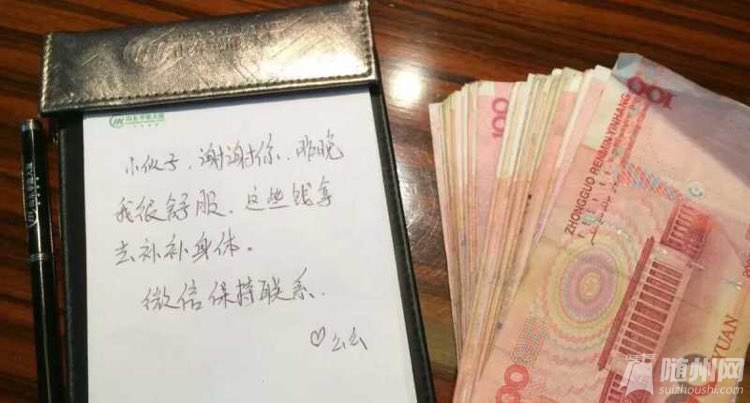 小伙子，谢谢你，昨晚
我很舒服，这些钱拿
去补补身体。
微信保持联系.
♡么么
100
100
ZHONGGUO RENMIN YINHANG
YUAN
随州网
suizhoushi.com